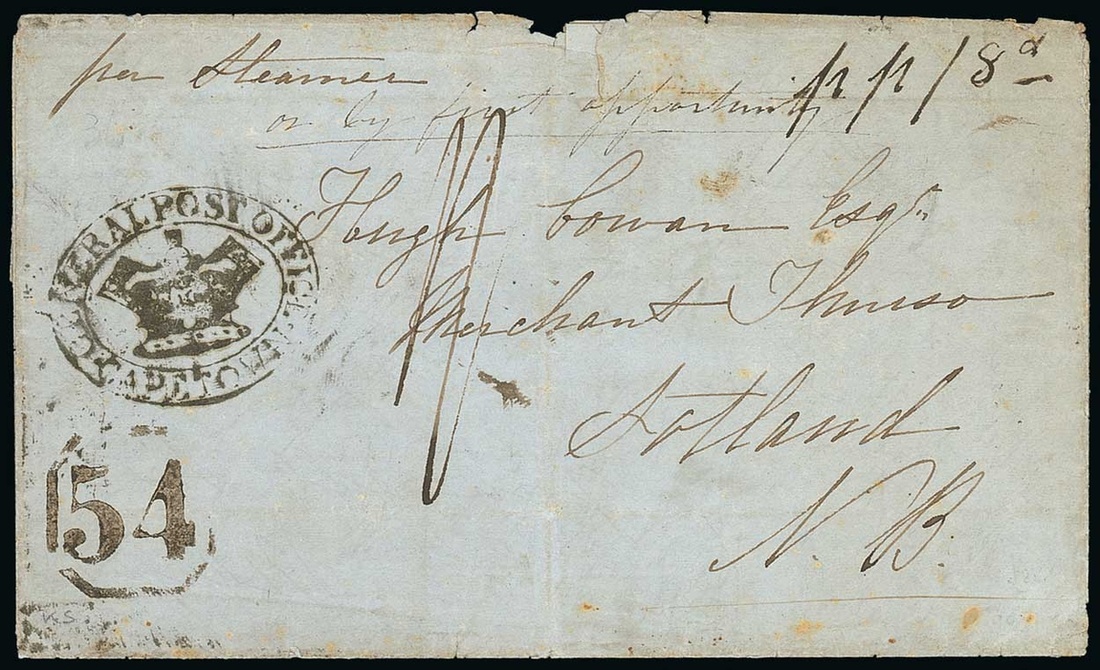 per Steamer
or by first opportunity
p p / 8d
Hugh Cowan Esqr
Merchant Thurso
Scotland
N. B.
GENERAL POST OFFICE
CAPE TOWN
54